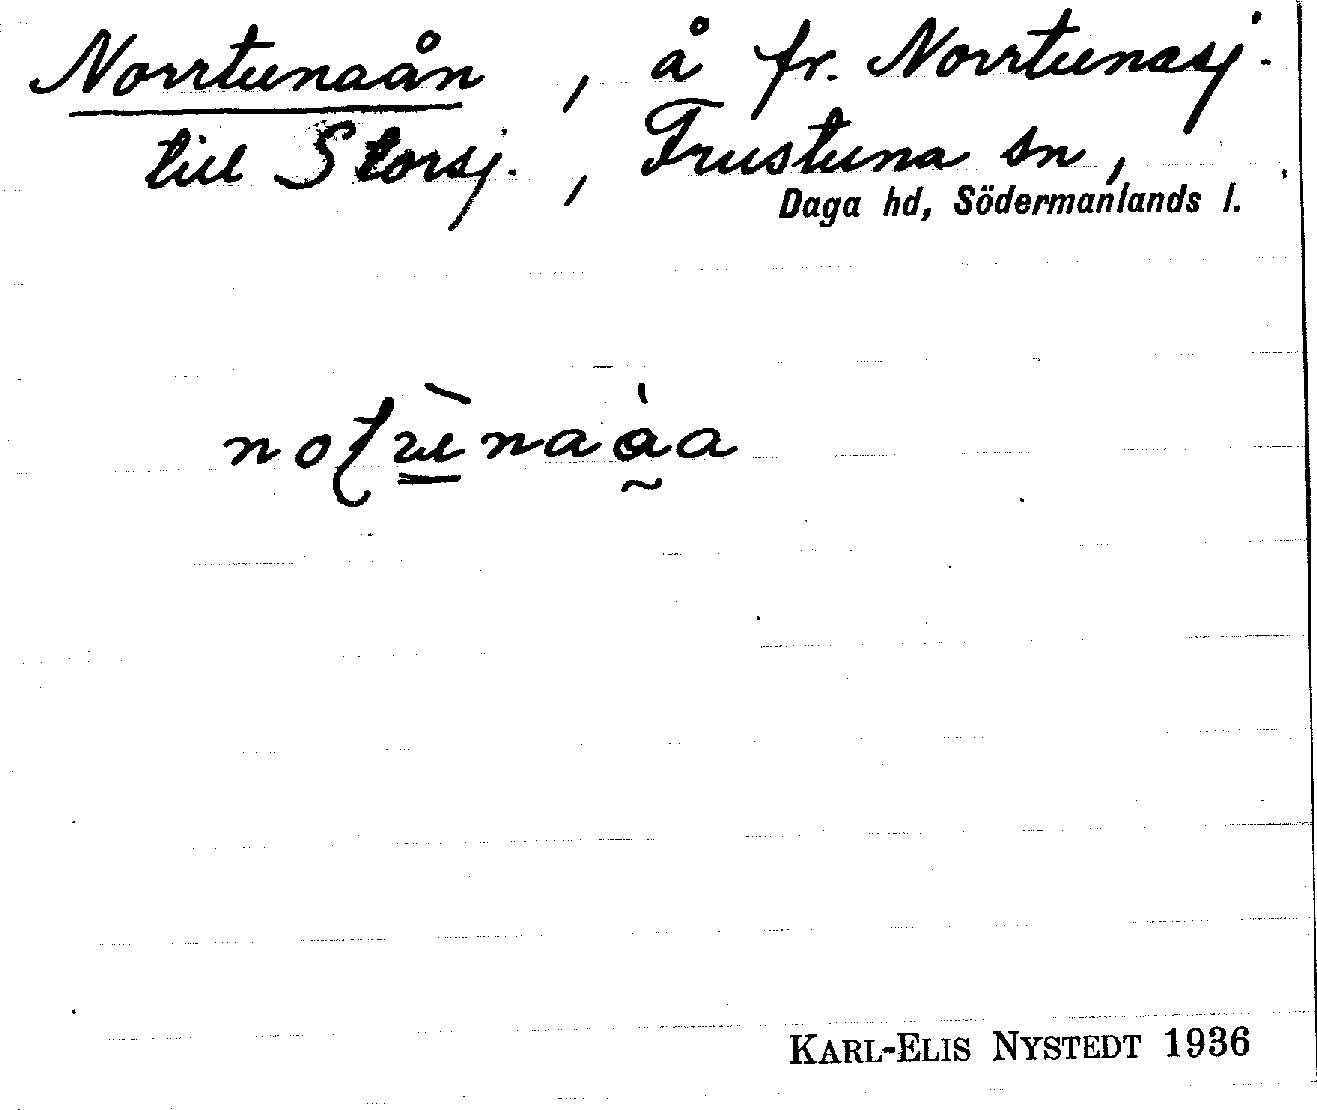 Norrtunaån, å fr. Norrtunasj.
till Storsj., Frustuna sn,
Daga hd, Södermanlands l.
KARL-ELIS NYSTEDT 1936